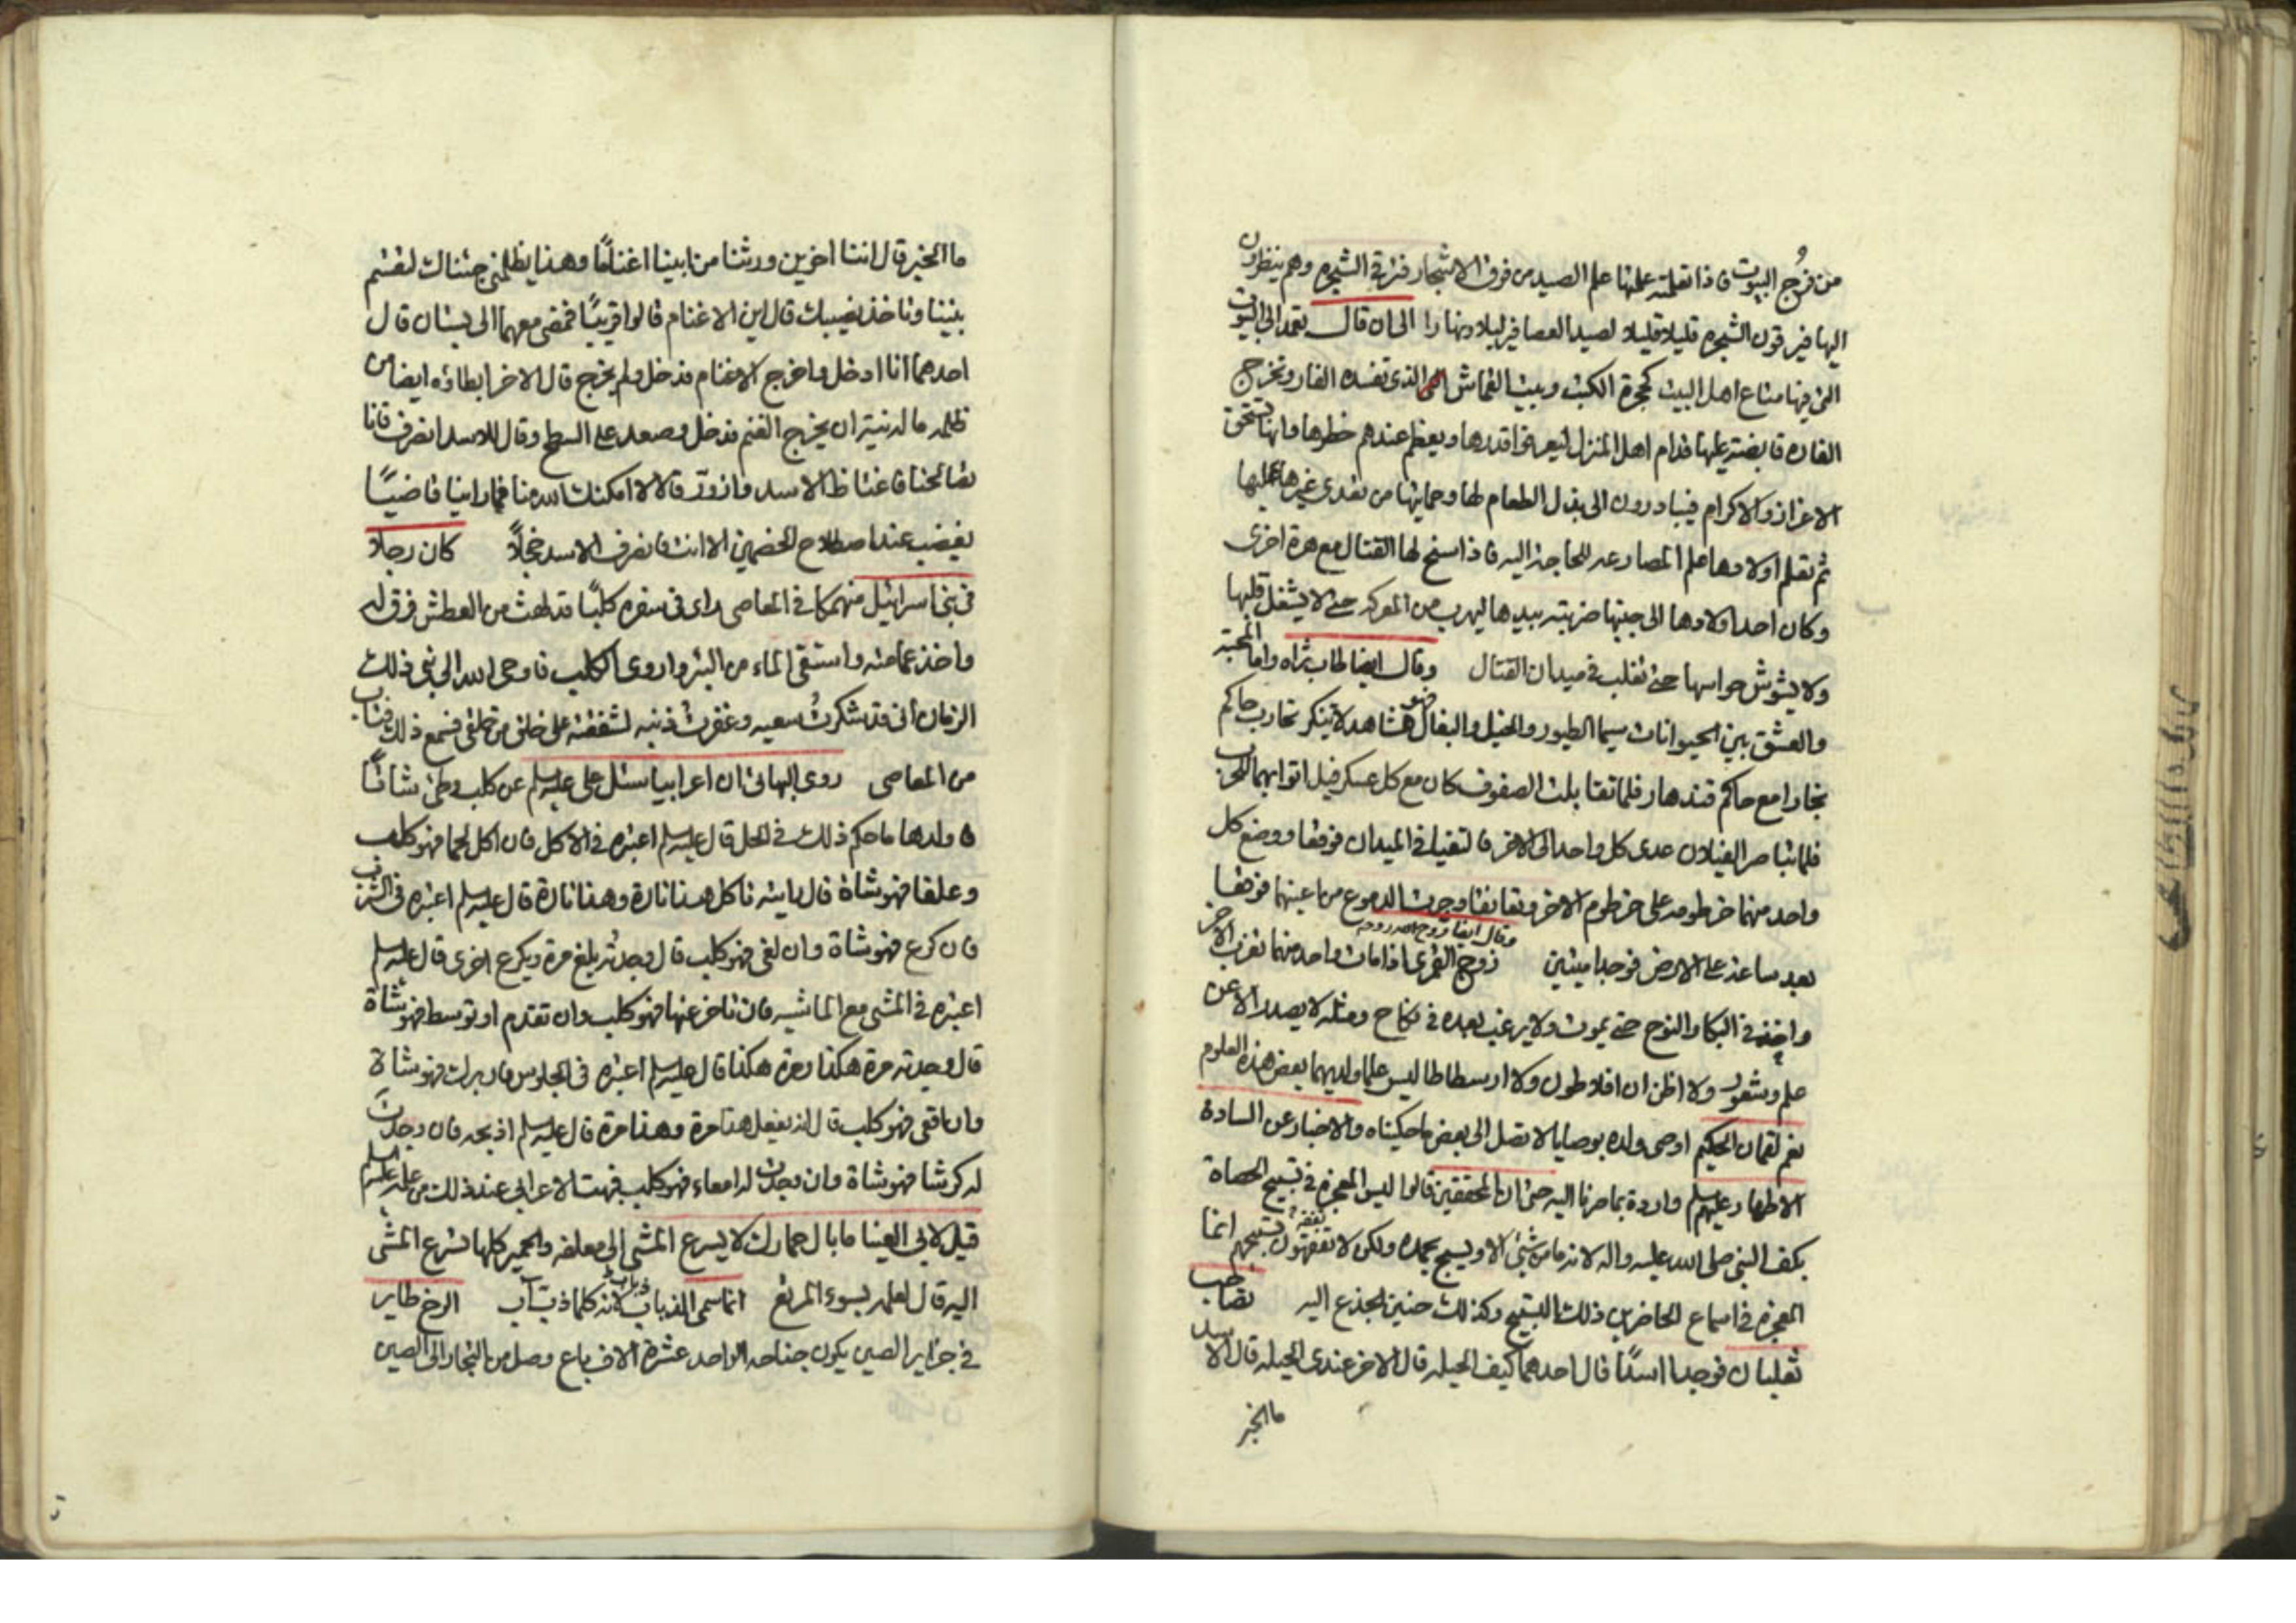 من فُرُج البيوت فاذا تعلمته علمتها علم الصيد من فوق الاشجار فترقي الشجرة وهم ينظرون
اليها فيرقون الشجرة قليلا قليلا لصيد العصافير ليلا ونهارا الى ان قال تعمد الى البيوت
التي فيها متاع اهل البيت كحجرة الكتب وبيت القماش الذي تفسده الفار وتخرج
الفارة قابضة عليها قدام اهل المنزل ليعرفوا قدرها ويعظم عندهم خطرها وانها تستحق
الاعزاز والاكرام فيبادرون الى بذل الطعام لها وحمايتها من تعدى غيرها عليها
ثم تعلم اولادها علم المصارعه المحاجة اليه فاذا سنح لها القتال مع هرة اخرى
وكان احد اولادها الى جنبها ضربته بيدها ليهرب من المعركه حتى لا يشغل قلبها
ولا يشوش حواسها حتى تغلب في ميدان القتال وقال ايضا طاب ثراه واما المحبة
والعشق بين الحيوانات سيما الطيور والخيل والبغال فهو مشاهد لا ينكر تحارب حاكم
بخارا مع حاكم قندهار فلما تقابلت الصفوف كان مع كل عسكر فيل اتوا بهما للحرب
فلما تباصر الفيلان عدى كل واحد الى الاخر فالتقيا في الميدان فوقفا ووضع كل
واحد منهما خرطومه على خرطوم الاخر وتعانقا وجرت الدموع من اعينهما فوقعا
بعد ساعة على الارض فوجدا ميتين وقال ايضا روح الله روحه زوج القمرى اذا مات واحد منهما تغرب الاخر
واخذ في البكا والنوح حتى يموت ولا يرغب بعده في نكاح ومثله لا يصدر الا عن
علم وشعور ولا اظن ان افلاطون ولا ارسطاطاليس علما ولديهما بعض هذه العلوم
نعم لقمان الحكيم اوصى ولده بوصايا لا تصل الى بعض ما حكيناه والاخبار عن السادة
الاطهار عليهم السلم واردة بما صرنا اليه حتى ان المحققين قالوا ليس المعجزة في تسبيح الحصاة
بكف النبي صلى الله عليه واله لانه ما من شئ الا ويسبح بحمده ولكن لا تفقهون تسبيحهم انما
المعجزة في اسماع الحاضرين ذلك التسبيح وكذلك حنين الجذع اليه تصاحب
ثعلبان فوجدا اسدًا قال احدهما كيف الحيله قال الاخر عندى الحيله قال الاسد
ما الخبر
ما الخبر قال اننا اخوين ورثنا من ابينا اغنامًا وهذا يظلمني جئناك لتقسم
بيننا وتاخذ نصيبك قال اين الاغنام قالوا قريبًا فمضى معهما الى بستان قال
احدهما انا ادخل واخرج الاغنام فدخل ولم يخرج قال الاخر ابطاؤه ايضا من
ظلمه ما له نية ان يخرج الغنم فدخل وصعد على السطح وقال للاسد انصرف فانا
تصالحنا فاغتاظ الاسد وازور قالا لا امكنك الله منا فما راينا قاضيًا
يغضب عند اصطلاح الخصمين الا انت فانصرف الاسد خجلًا كان رجلا
في بني اسرائيل منهمكا في المعاصى راى في سفره كلبًا قد لهث من العطش فرق له
واخذ عمامته واستقى الماء من البئر واروى الكلب فاوحى الله الى نبي ذلك
الزمان انى قد شكرتُ سعيه وغفرتُ ذنبه لشفقته على خلق من خلقى فسمع ذلك فتاب
من المعاصى روى البهائى ان اعرابيا سئل على عليه السلم عن كلب وطئ شاتًا
فاولدها ما حكم ذلك في الحل قال عليه السلم اعتبره في الاكل فان اكل لحما فهو كلب
وعلفا فهو شاة قال رايته تاكل هذا تارة وهذا تارة قال عليه السلم اعتبره في الشرب
فان كرع فهو شاة وان لغى فهو كلب قال وجدته يلغ مرة ويكرع اخرى قال عليه السلم
اعتبره في المشى مع الماشيه فان تاخر عنها فهو كلب وان تقدم او توسط فهو شاة
قال وجدته مرة هكذا ومرة هكذا قال عليه السلم اعتبره في الجلوس فان برك فهو شاة
وان اقعى فهو كلب قال انه يفعل هذا مرة وهذا مرة قال عليه السلم اذبحه فان وجدتَ
له كرشا فهو شاة وان وجدت له امعاء فهو كلب فبهت الاعرابي عند ذلك من علمه عليه السلم
قيل لابى العينا ما بال حمارك لا يسرع المشى الى معلفه والحمير كلها تسرع المشى
اليه قال لعلمه بسوء المرتع انما سمى الذباب ذباب لانه كلما ذب آب الرخ طاير
في جزاير الصين يكون جناحه الواحد عشرة الاف باع وصل من التجار الى الصين